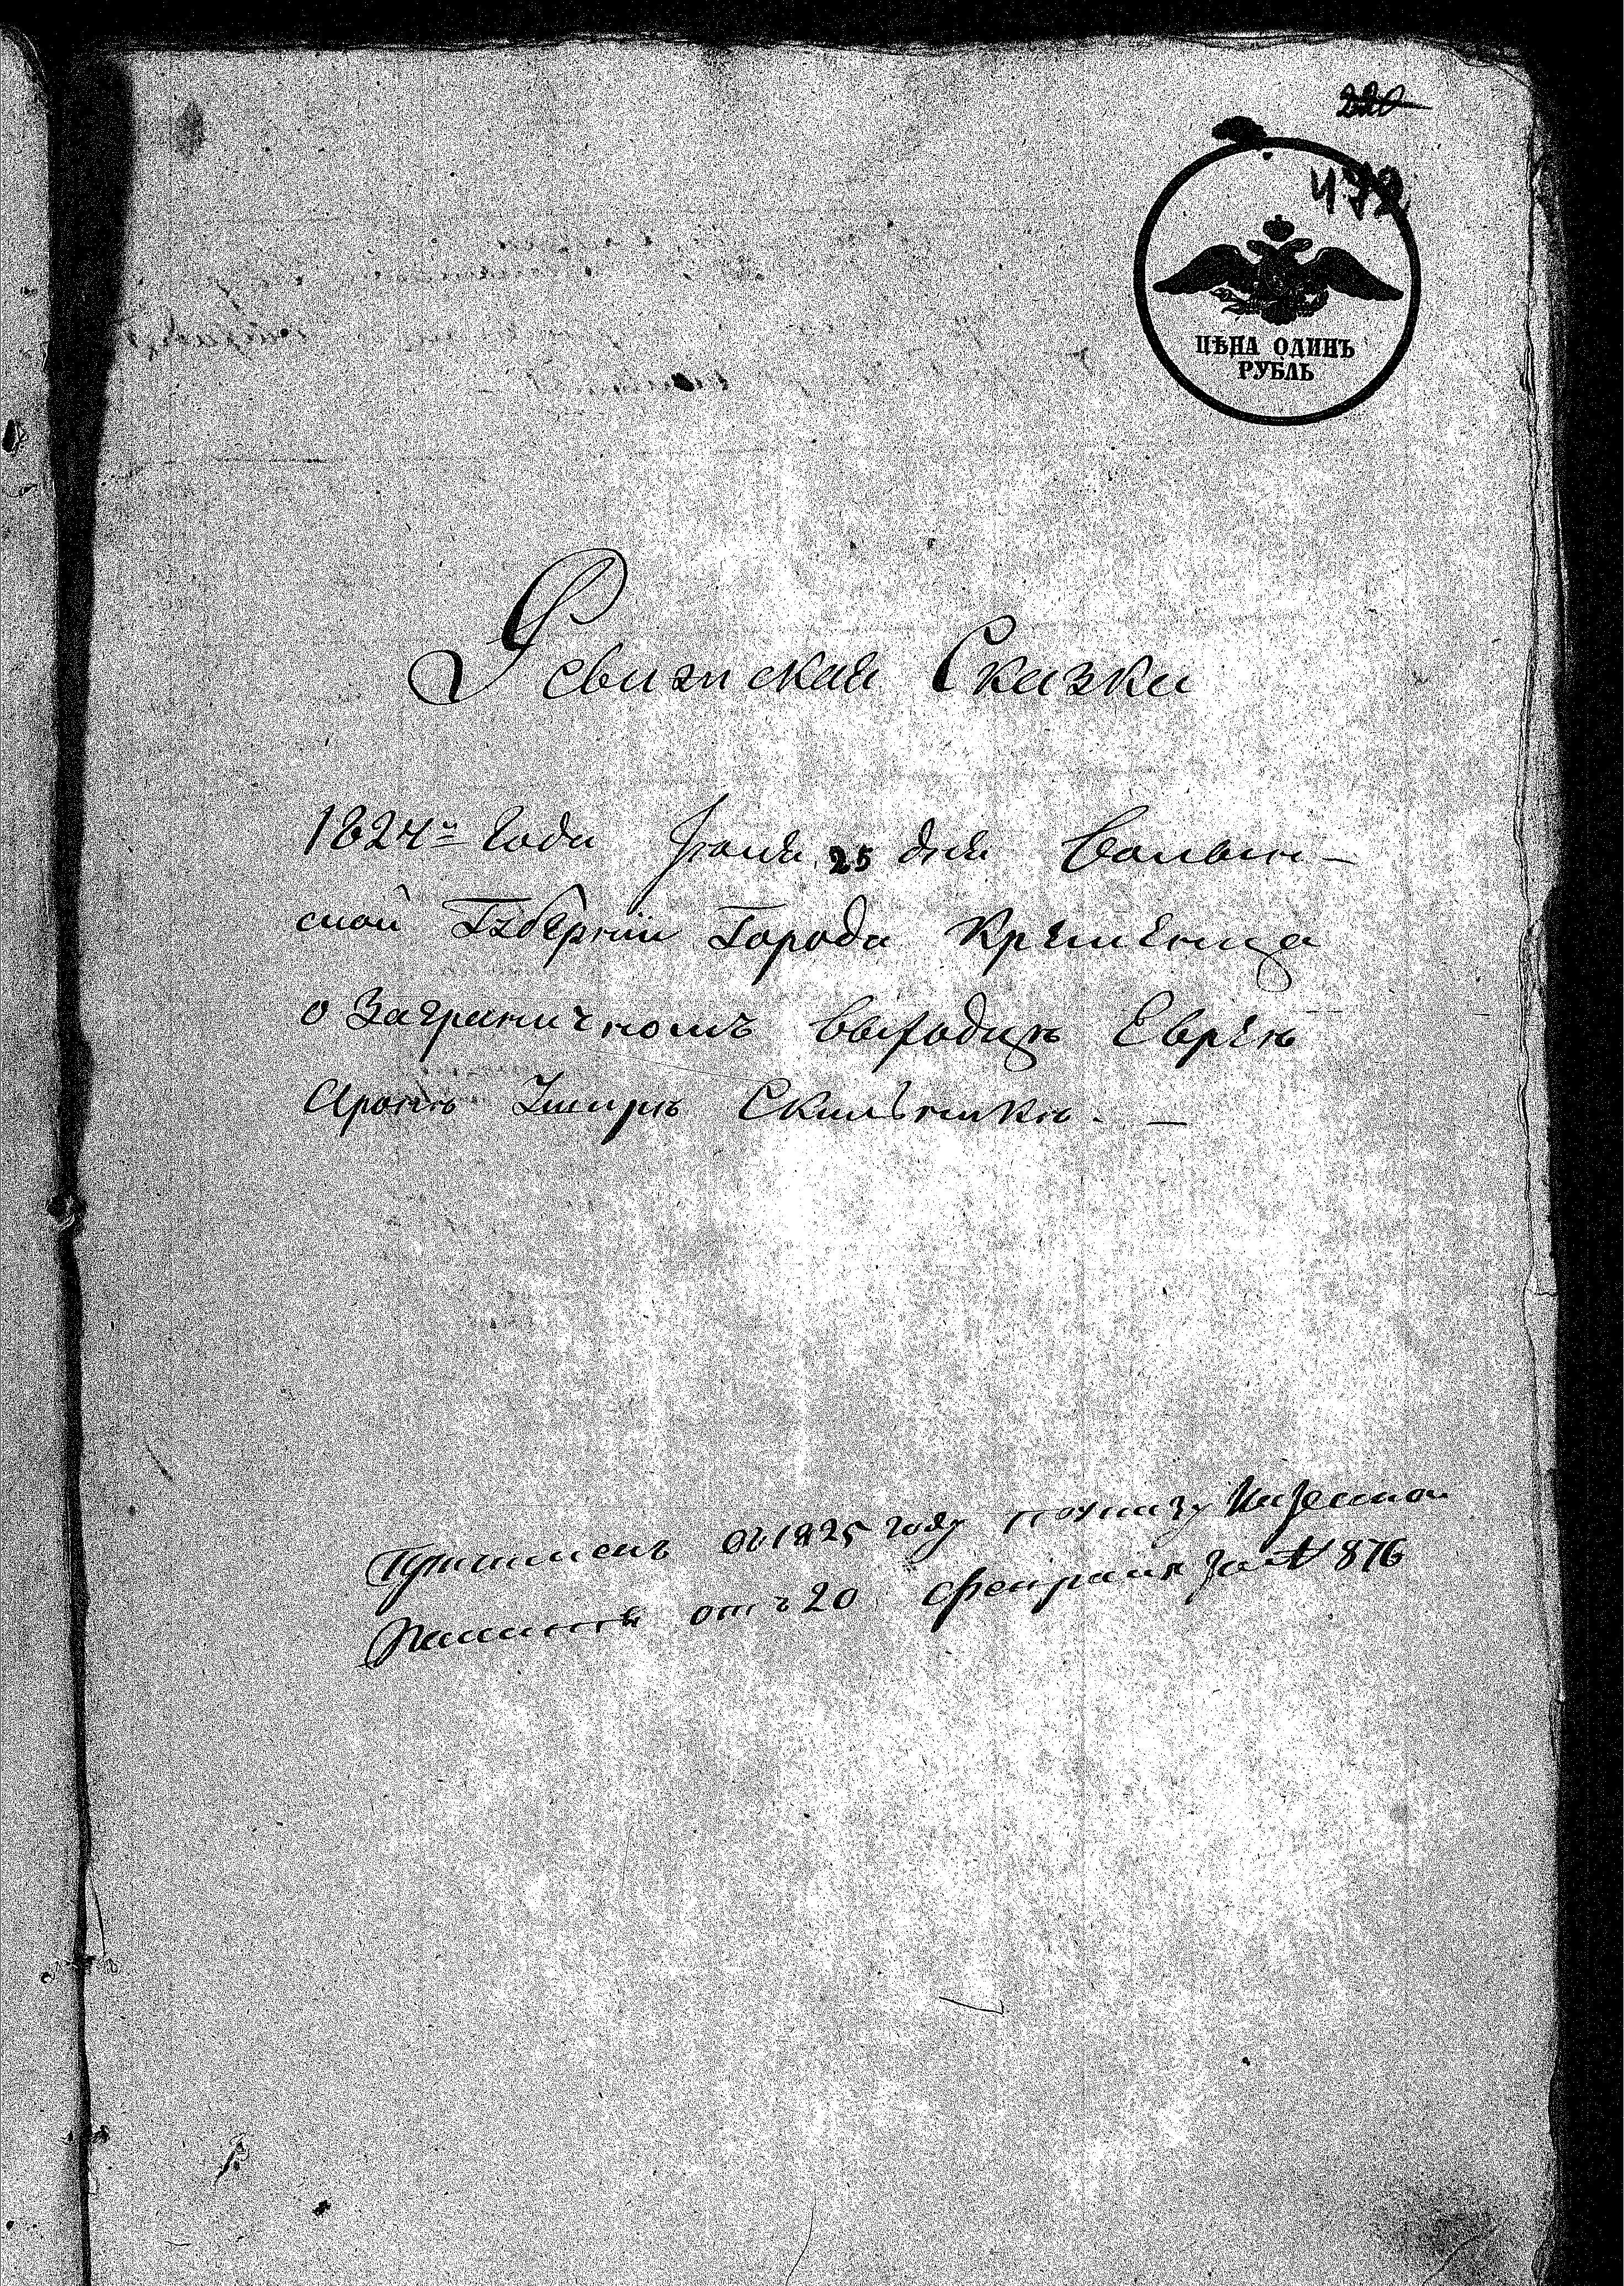 220
472
ЦѢНА ОДИНЪ
РУБЛЬ
Ревизская Сказка
1824го Года Іюля 25 дня Волын-
ской Губерніи Города Кременца
о Заграничномъ выходцѣ Евреѣ
Аронѣ Шмирѣ
въ 1825 году по указу Казенной
Палаты отъ 20 февраля за № 876